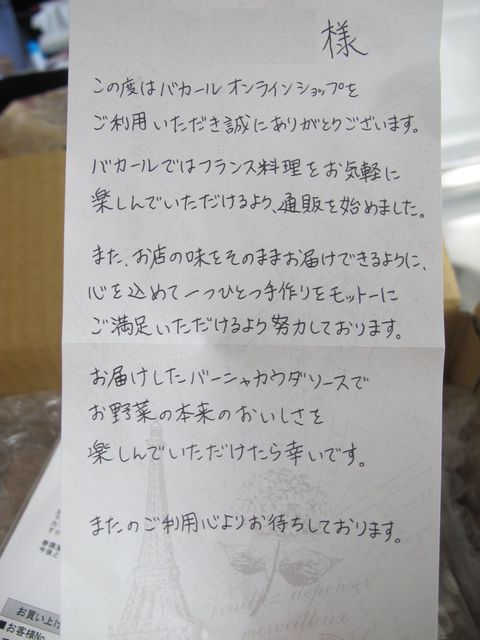 様
この度はバカール オンラインショップを
ご利用いただき誠にありがとうございます。
バカールではフランス料理をお気軽に
楽しんでいただけるよう、通販を始めました。
また、お店の味をそのままお届けできるように、
心を込めて一つひとつ手作りをモットーに
ご満足いただけるよう努力しております。
お届けしたバーニャカウダソースで
お野菜の本来のおいしさを
楽しんでいただけたら幸いです。
またのご利用心よりお待ちしております。
merveilleux
お買い上げ
■お客様No